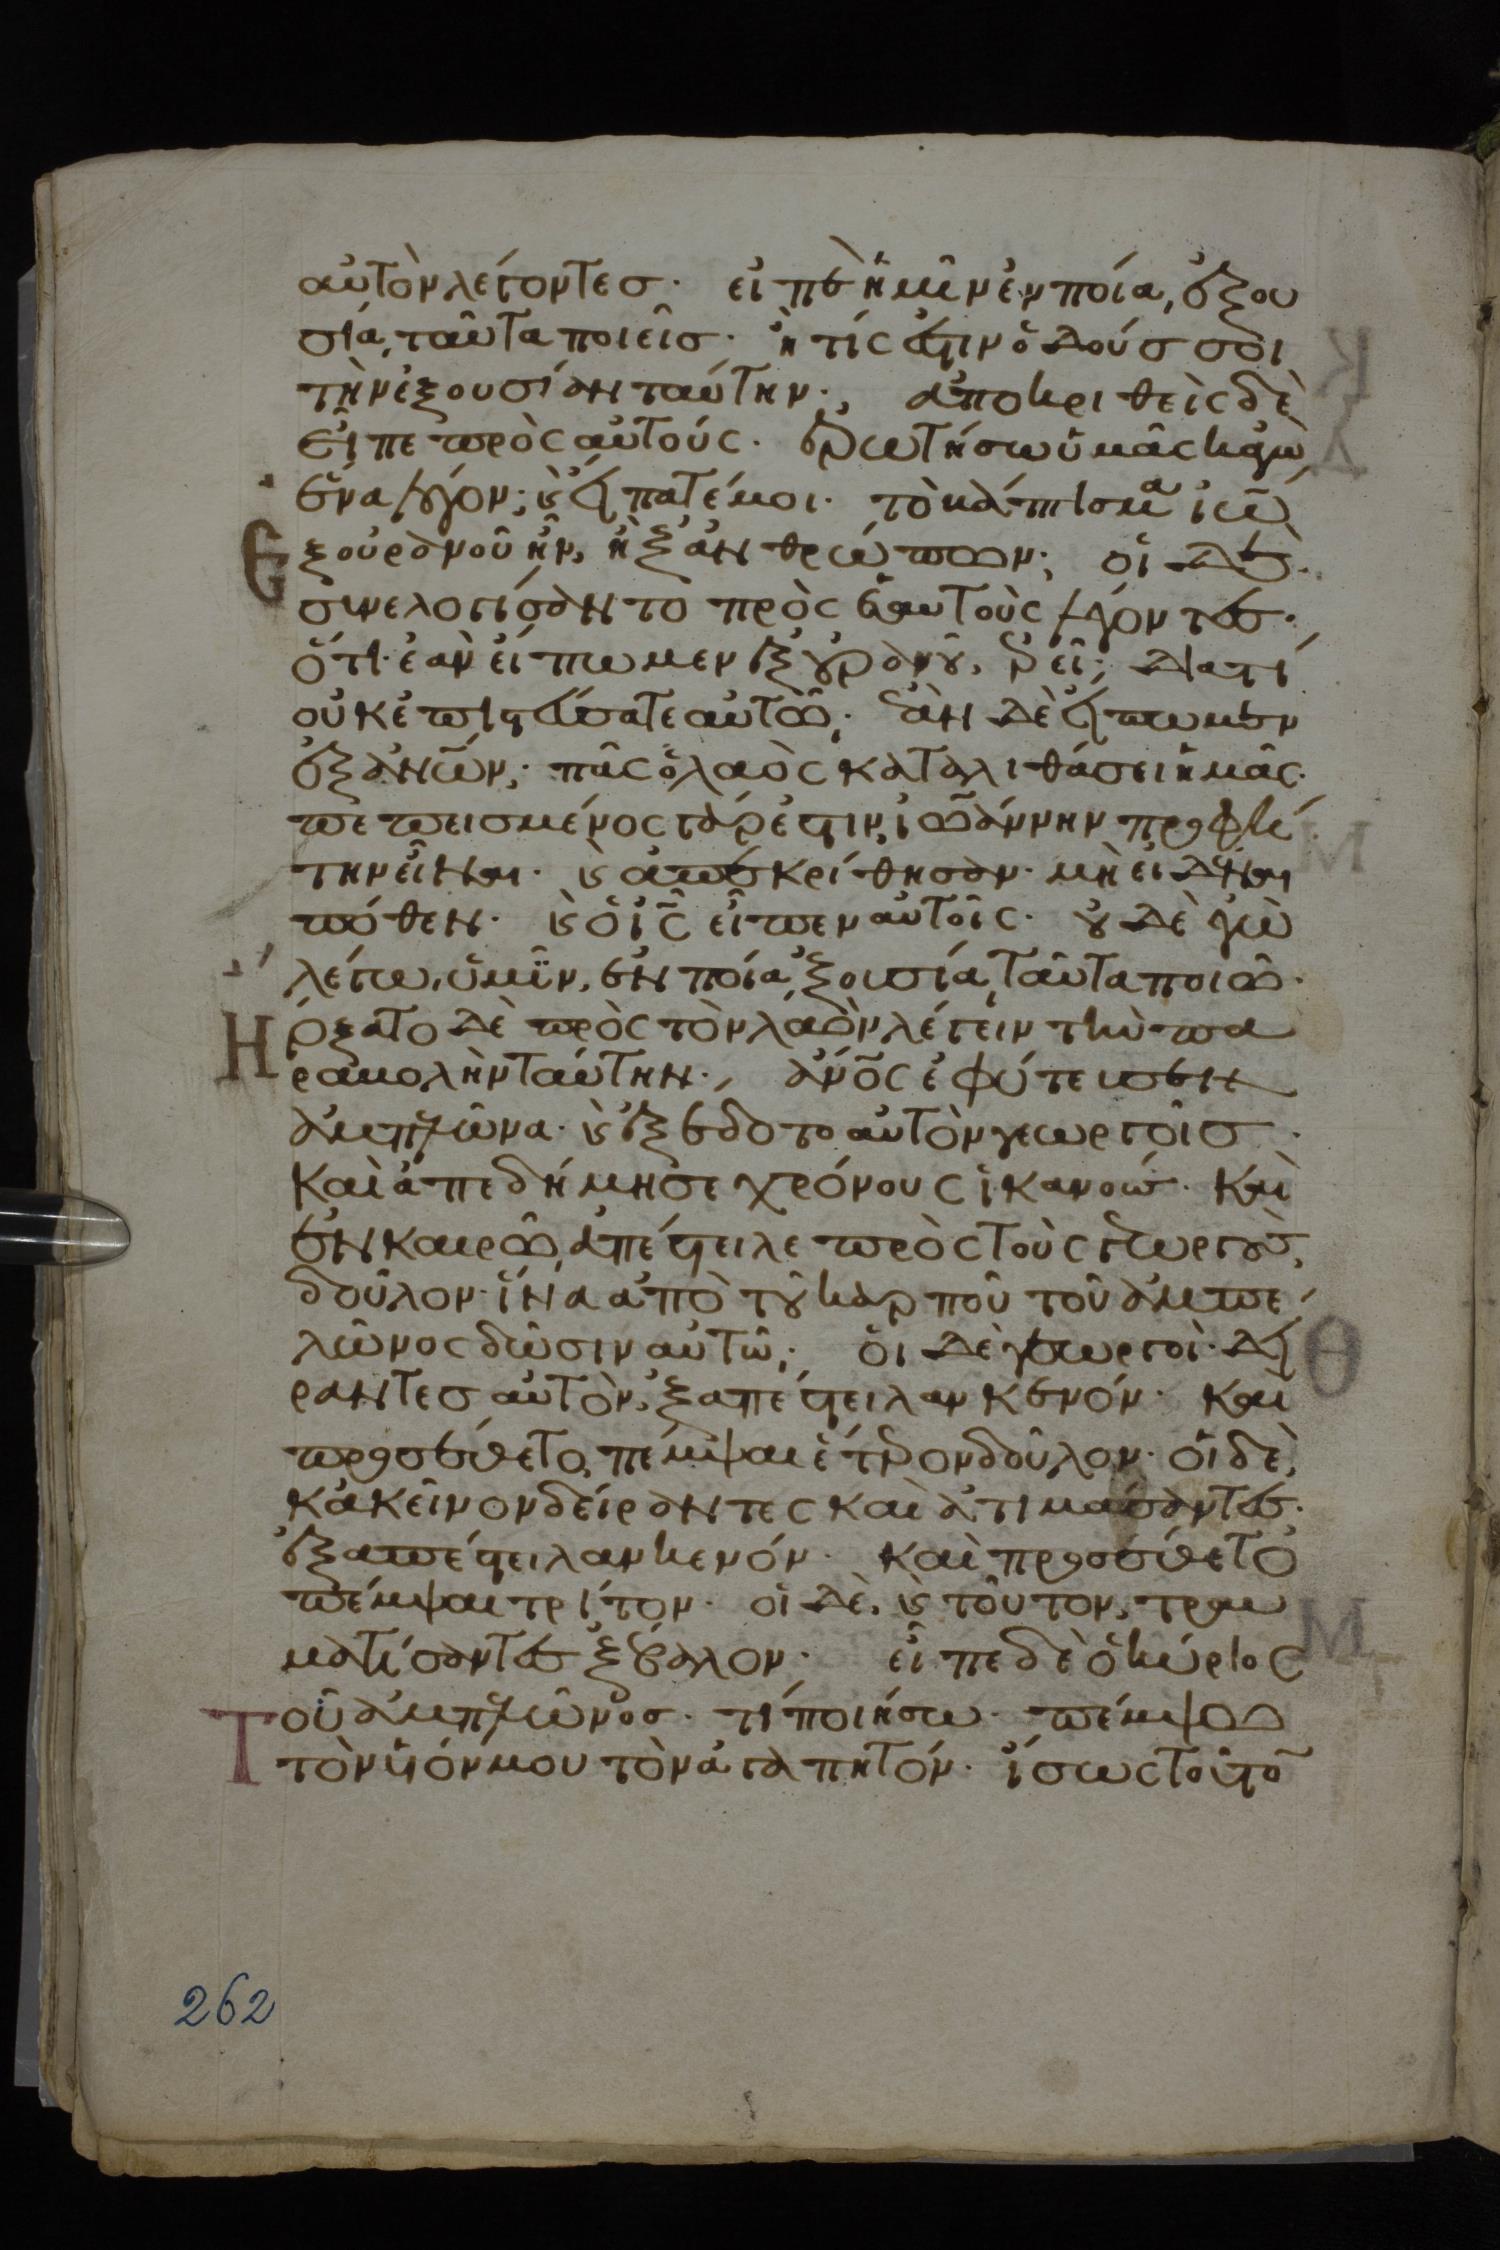 αὐτὸν λέγοντες· εἰπὲ ἡμῖν ἐν ποία, ἐξου
σία, ταῦτα ποιεῖς· ἢ τίς ἐστιν ὁ δούς σοι
τὴν ἐξουσίαν ταύτην· ἀποκριθεὶς δὲ
εἶπε πρὸς αὐτούς· ἐρωτήσω ὑμᾶς κἀγὼ
ἕνα λόγον· ϗ εἴπατέ μοι· τὸ βάπτισμα ἰω
Ἐξ οὐρανοῦ ἦν, ἢ ἐξ ἀνθρώπων· οἱ δὲ
συνελογίσαντο πρὸς ἑαυτοὺς λέγοντες·
ὅτι ἐὰν εἴπωμεν ἐξ οὐρανοῦ, ἐρεῖ· διατί
οὐκ ἐπιστεύσατε αὐτῶ· ἐὰν δὲ εἴπωμεν
ἐξ ἀνων· πᾶς ὁ λαὸς καταλιθάσει ἡμᾶς·
πεπεισμένος γάρ ἐστιν, ἰωάννην προφή
την εἶναι· ϗ ἀπεκρίθησαν· μὴ εἰδέναι
πόθεν· ϗ ὁ ις εἶπεν αὐτοῖς· οὐδὲ ἐγὼ
λέγω, ὑμῖν, ἐν ποία ἐξουσία, ταῦτα ποιῶ·
Ἤρξατο δὲ πρὸς τὸν λαὸν λέγειν τὴν πα
ραβολὴν ταύτην· ἀνος ἐφύτευσεν
ἀμπελῶνα· ϗ ἐξέδοτο αὐτὸν γεωργοῖς·
Καὶ ἀπεδήμησε χρόνους ἱκανούς· Καὶ
ἐν καιρῶ, ἀπέστειλε πρὸς τοὺς γεωργοὺς,
δοῦλον· ἵνα ἀπὸ τοῦ καρποῦ τοῦ ἀμπε
λῶνος δῶσιν αὐτῶ· οἱ δὲ γεωργοὶ· δεί
ραντες αὐτὸν, ἐξαπέστειλαν κενόν· Καὶ
προσέθετο, πέμψαι ἕτερον δοῦλον· οἱ δὲ,
κἀκεῖνον δείραντες καὶ ἀτιμάσαντες·
ἐξαπέστειλαν κενόν· καὶ προσέθετο
πέμψαι τρίτον· οἱ δὲ, ϗ τοῦτον, τραυ
ματίσαντες ἐξέβαλον· εἶπε δὲ ὁ κύριος
Τοῦ ἀμπελῶνος· τί ποιήσω· πέμψω
τὸν υἱόν μου τὸν ἀγαπητόν· ἴσως τοῦτο
262